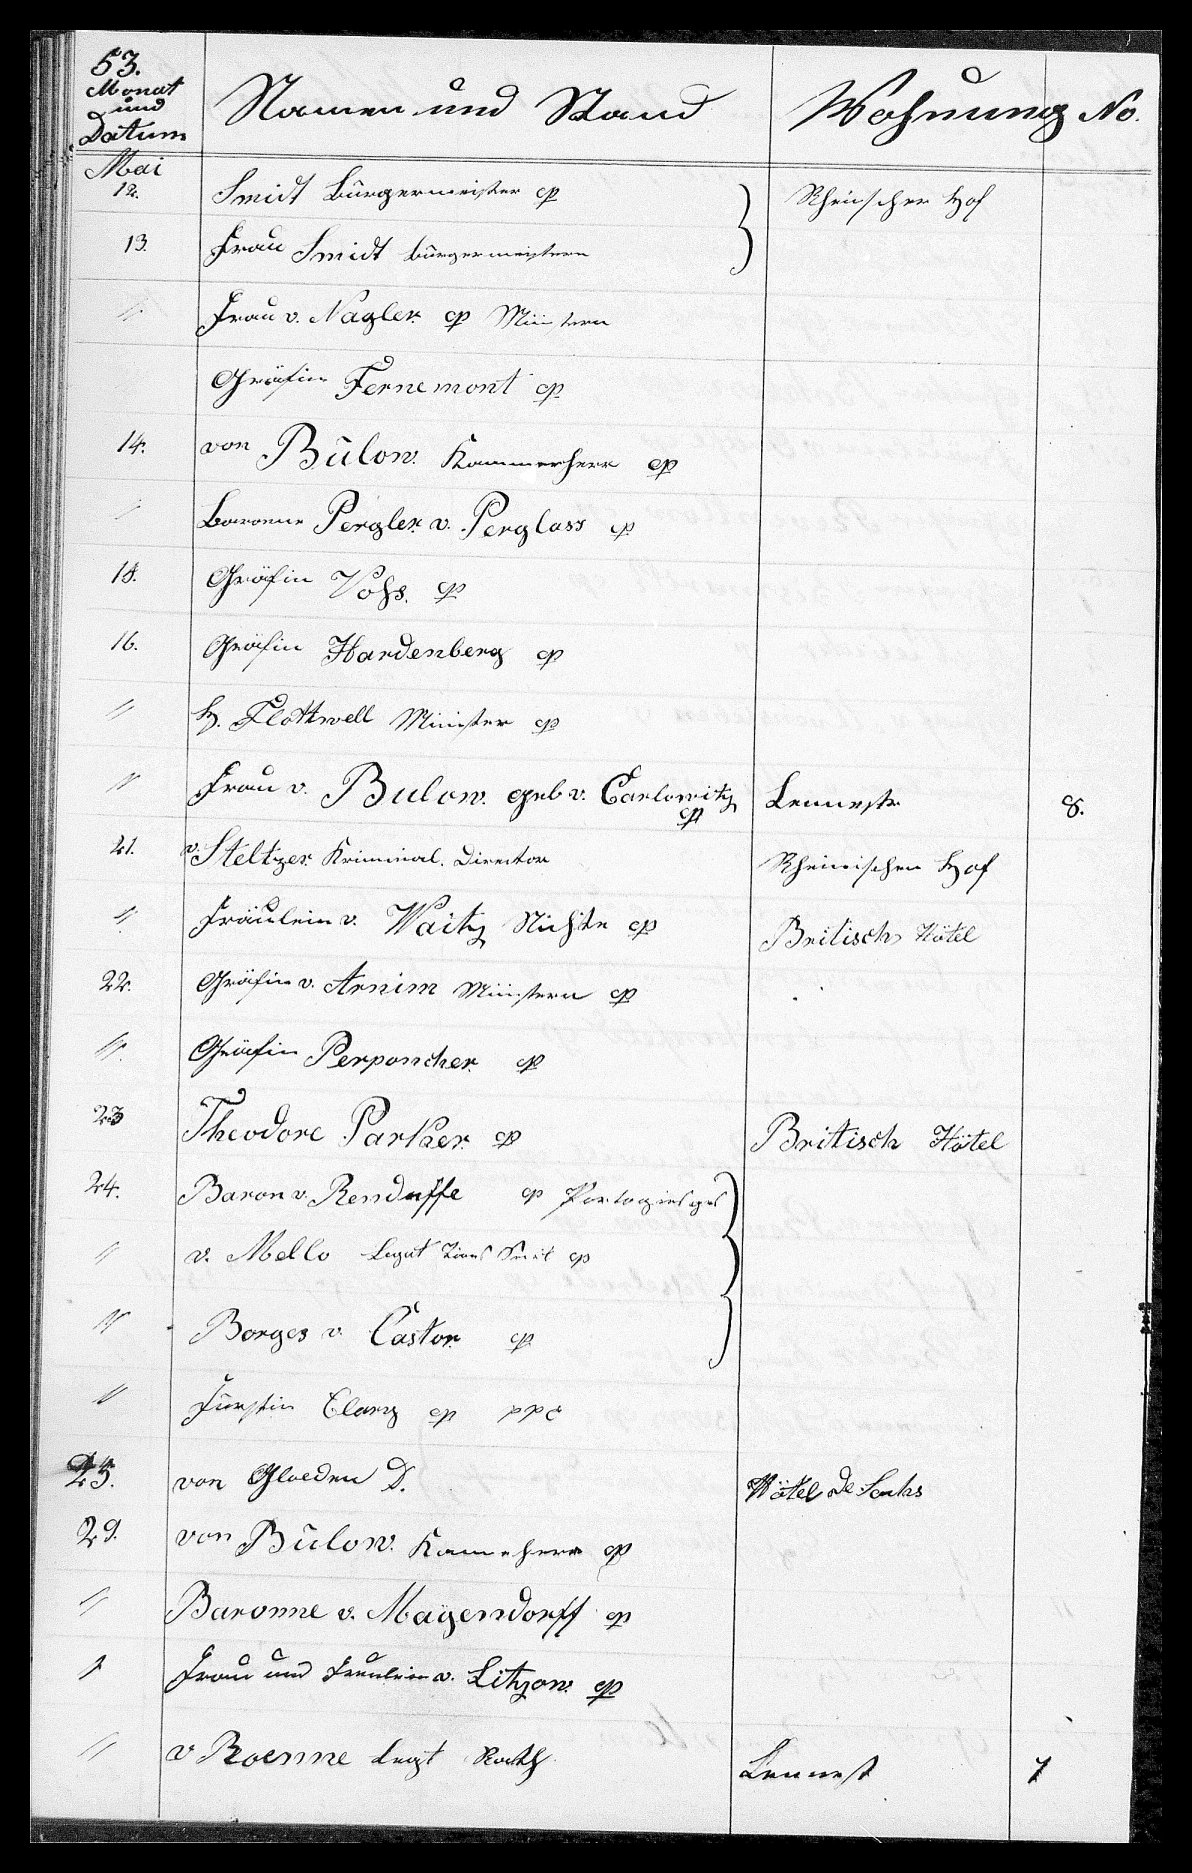 53.
Monat und Datum Namen und Stand Wohnung No.
Mai
12. Smidt Bürgermeister cp Rheinischer Hof
13. Frau Smidt bürgermeistern
" Frau v. Nagler cp Ministern
Gräfin Fernemont cp
14. von Bülow. Kammerherr cp
" Baronne Pergler v. Perglass cp
18. Gräfin Vohs. cp
16. Gräfin Hardenberg cp
" H. Flottwell Minister cp
" Frau v. Bulow. geb v. Carlowitz cp Lennestr 8.
21. v. Steltzer Kriminal. Director Rheinischer Hof
" Fräulein v. Waitz Nichte cp Britisch Hôtel
22. Gräfin v. Arnim Ministern cp
" Gräfin Perponcher cp
23 Theodore Parker cp Britisch Hôtel
24. Baron v. Renduffe cp
" v. Mello cp
" Borges v. Castor cp
" Fürstin Clary cp ppc
25. von Gloeden D. Hôtel de
29. von Bülow. Kamerherr cp
" Baronne v. Mayendorff cp
" Frau und Fräulein v. Litzow. cp
" v Roenne Legt Rath Lennest 7